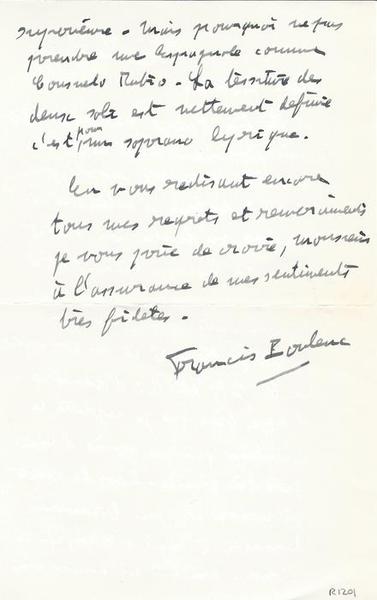 supérieure. Mais pourquoi ne pas
prendre une Espagnole comme
Consuelo Rubio. La tessiture des
deux soli est nettement définie
c'est pour un soprano lyrique.
En vous redisant encore
tous mes regrets et remerciements
je vous prie de croire, monsieur
à l'assurance de mes sentiments
très fidèles.
Francis Poulenc
R1201